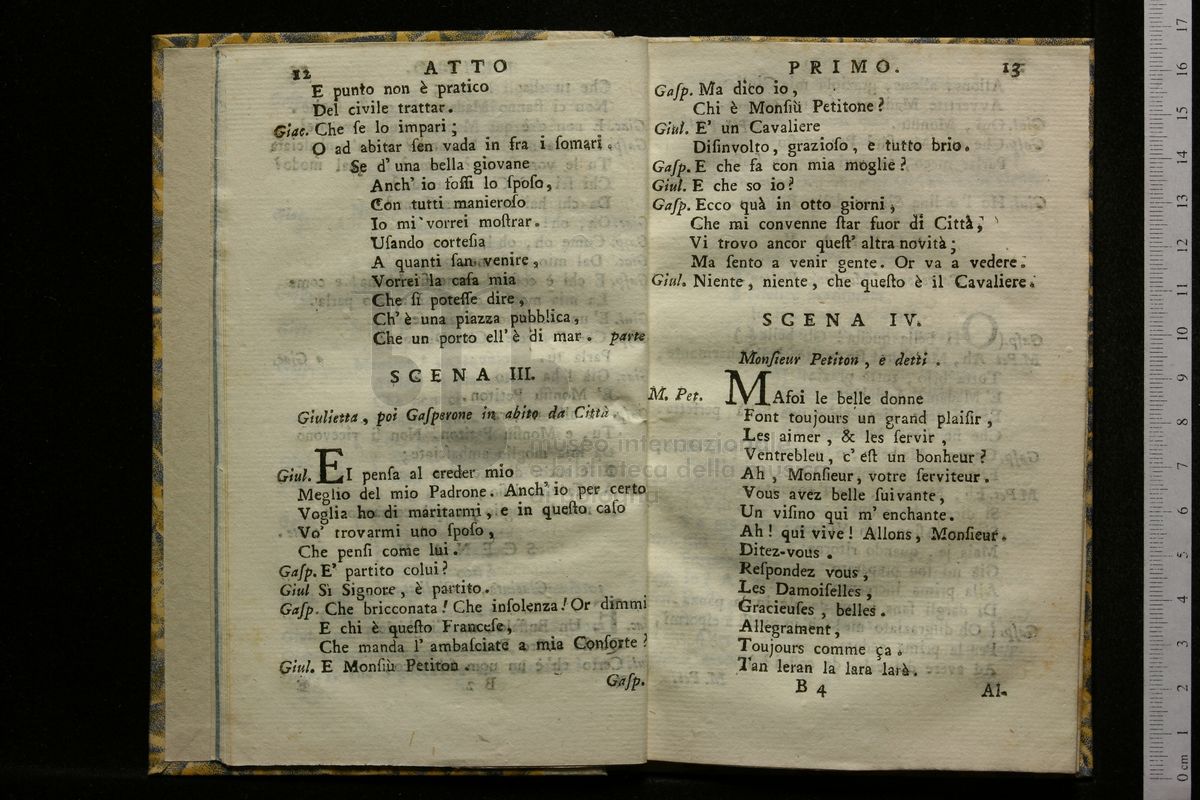 12 ATTO
E punto non è pratico
Del civile trattar.
Giac. Che ſe lo impari;
O ad abitar ſen vada in fra i ſomari.
Se d' una bella giovane
Anch' io foſſi lo ſpoſo,
Con tutti manieroſo
Io mi vorrei moſtrar.
Uſando corteſia
A quanti ſan venire,
Vorrei la caſa mia
Che ſi poteſſe dire,
Ch' è una piazza pubblica,
Che un porto ell' è di mar. parte
SCENA III.
Giulietta, poi Gaſperone in abito da Città.
Giul. EI penſa al creder mio
Meglio del mio Padrone. Anch' io per certo
Voglia ho di maritarmi, e in queſto caſo
Vo' trovarmi uno ſpoſo,
Che penſi come lui.
Gaſp. E' partito colui?
Giul Sì Signore, è partito.
Gaſp. Che bricconata! Che inſolenza! Or dimmi
E chi è queſto Franceſe,
Che manda l' ambaſciate a mia Conſorte?
Giul. E Monſiù Petiton.
Gaſp.
PRIMO. 13
Gaſp. Ma dico io,
Chi è Monſiù Petitone?
Giul. E' un Cavaliere
Diſinvolto, grazioſo, e tutto brio.
Gaſp. E che fa con mia moglie?
Giul. E che so io?
Gaſp. Ecco quà in otto giorni,
Che mi convenne ſtar fuor di Città,
Vi trovo ancor queſt' altra novità;
Ma ſento a venir gente. Or va a vedere.
Giul. Niente, niente, che queſto è il Cavaliere.
SCENA IV.
Monſieur Petiton, e detti.
M. Pet. MAfoi le belle donne
Font toujours un grand plaiſir,
Les aimer, & les ſervir,
Ventrebleu, c' eſt un bonheur?
Ah, Monſieur, votre ſerviteur.
Vous avez belle ſuivante,
Un viſino qui m' enchante.
Ah! qui vive! Allons, Monſieur.
Ditez-vous.
Reſpondez vous,
Les Damoiſelles,
Gracieuſes, belles.
Allegrament,
Toujours comme ça.
Tan leran la lara larà.
B 4 Al-
museo internazionale
e biblioteca della musica